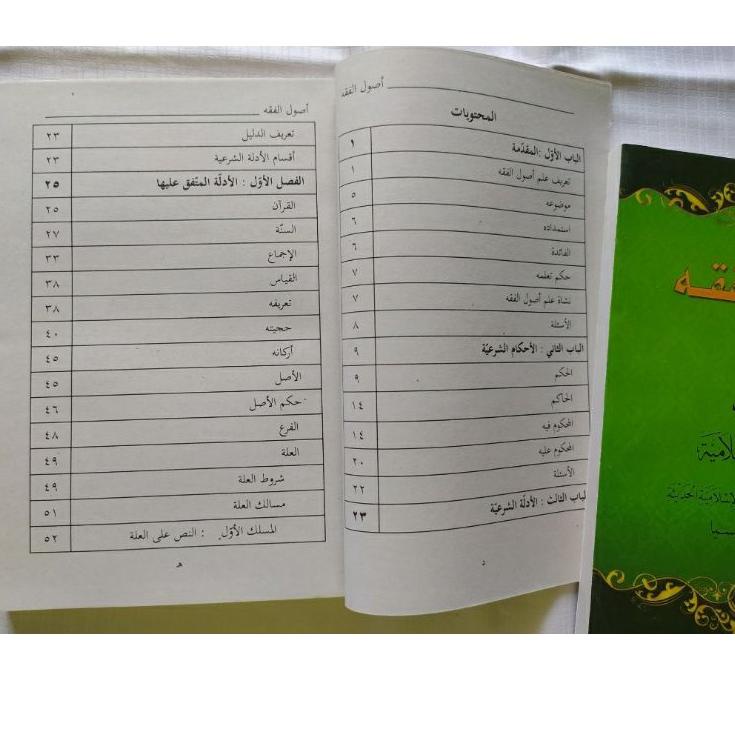 أصول الفقه
المحتويات
الباب الأوّل :المقدّمة ١
تعريف علم أصول الفقه ١
موضوعه ٥
استمداده ٦
الفائدة ٦
حكم تعلمه ٧
نشاة علم أصول الفقه ٧
الأسئلة ٨
الباب الثاني : الأحكام الشرعيّة ٩
الحكم ٩
الحاكم ١٤
المحكوم فيه ١٤
المحكوم عليه ٢٠
الأسئلة ٢٢
الباب الثالث : الأدلّة الشرعيّة ٢٣
د
أصول الفقه
تعريف الدليل ٢٣
أقسام الأدلة الشرعية ٢٣
الفصل الأوّل : الأدلّة المتّفق عليها ٢٥
القرآن ٢٥
السنّة ٢٧
الإجماع ٣٣
القياس ٣٨
تعريفه ٣٨
حجيته ٤٠
أركانه ٤٥
الأصل ٤٥
حكم الأصل ٤٦
الفرع ٤٨
العلة ٤٩
شروط العلة ٤٩
مسالك العلة ٥١
المسلك الأوّل : النص على العلة ٥٢
ﻫ